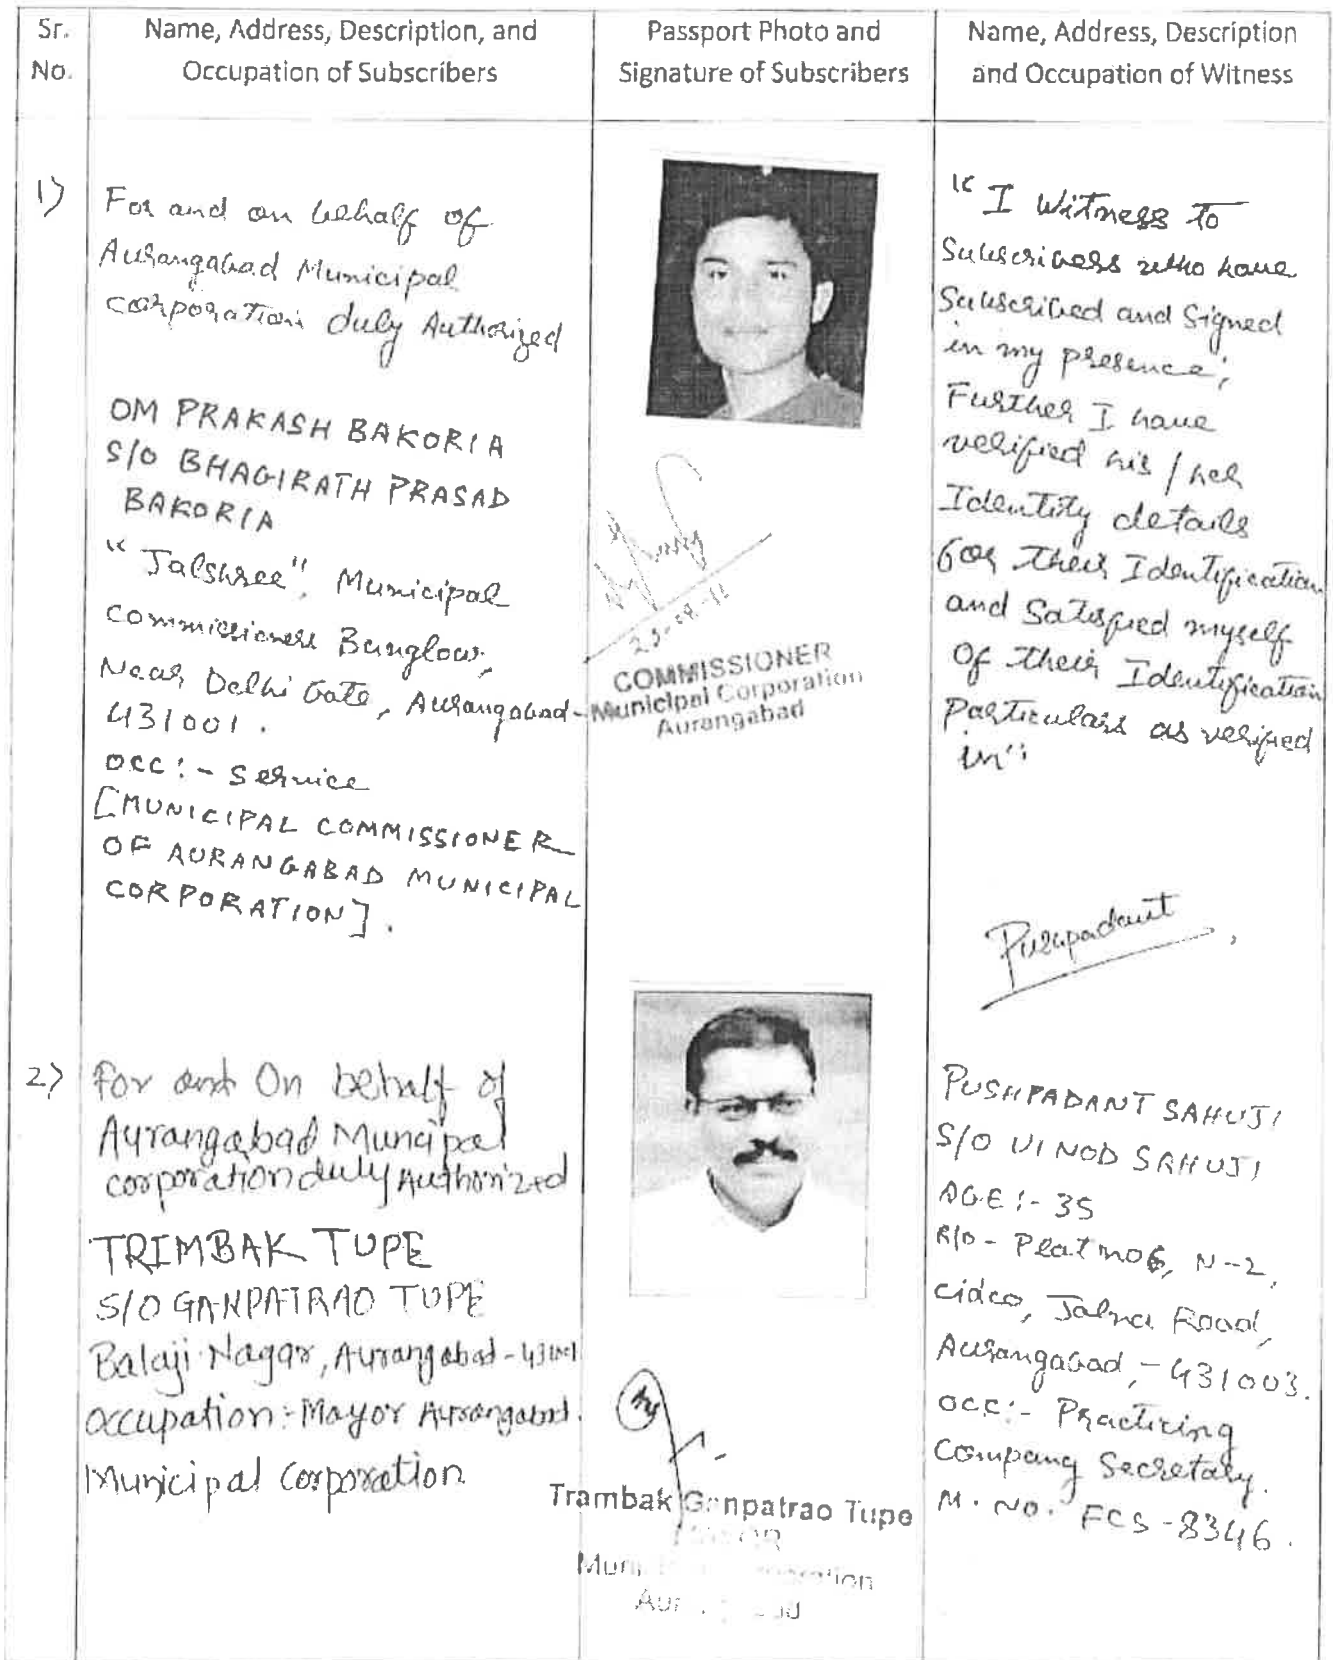 Sr. No.
Name, Address, Description, and
Occupation of Subscribers
Passport Photo and
Signature of Subscribers
Name, Address, Description
and Occupation of Witness
1)
For and on behalf of
Aurangabad Municipal
corporation duly Authorized
OM PRAKASH BAKORIA
S/O BHAGIRATH PRASAD
BAKORIA
"Jalshree", Municipal
Commissioners Banglow,
Near Delhi Gate, Aurangabad-
431001.
OCC:- Service
[MUNICIPAL COMMISSIONER
OF AURANGABAD MUNICIPAL
CORPORATION].
COMMISSIONER
Municipal Corporation
Aurangabad
"I Witness to
Subscribers who have
Subscribed and Signed
in my presence;
Further I have
verified his/her
Identity details
for their Identification
and Satisfied myself
of their Identification
Particulars as verified
in"
Puspadant
2)
For and On behalf of
Aurangabad Muncipal
corporation duly Authorized
TRIMBAK TUPE
S/O GANPATRAO TUPE
Balaji Nagar, Aurangabad-431001
occupation:-Mayor Aurangabad.
Municipal Corporation
Trambak Ganpatrao Tupe
Aurangabad
PUSHPADANT SAHUJI
S/O VINOD SAHUJI
AGE:- 35
R/o - Plat no 6, N-2,
cidco, Jalna Road,
Aurangabad,-431003.
OCC:- Practicing
Company Secretary.
M. NO. FCS-8346.